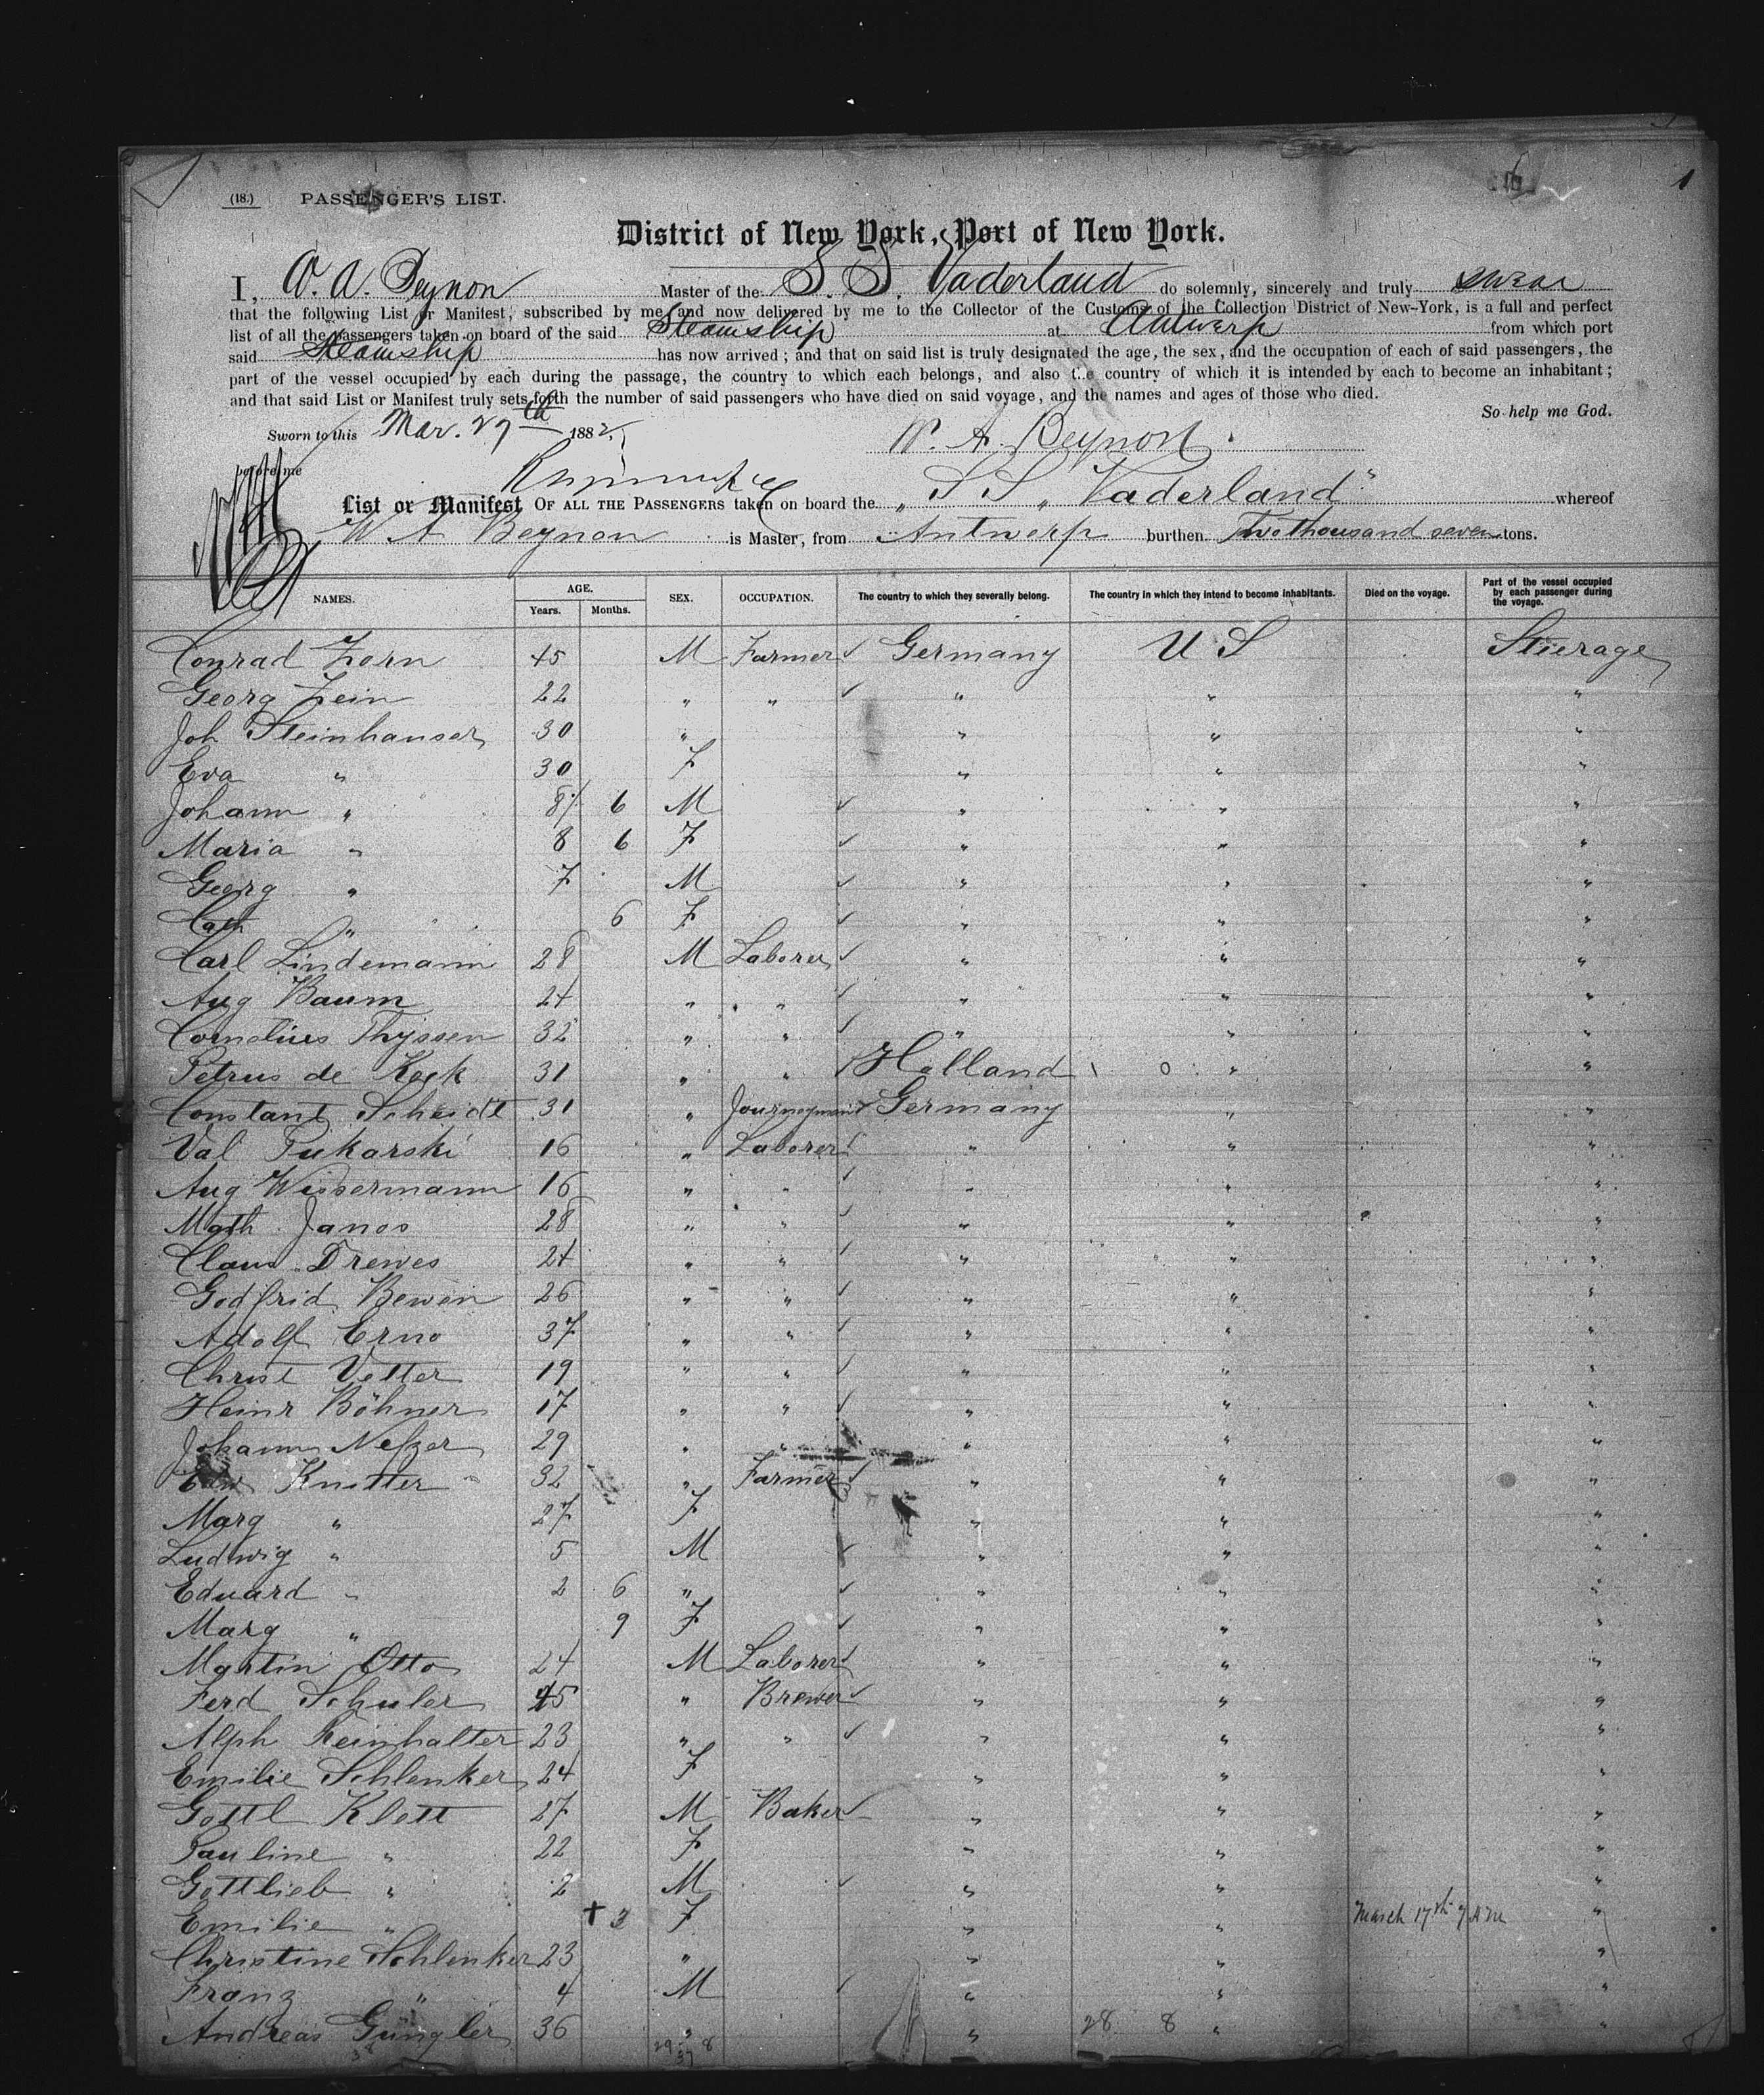 1
(18.) PASSENGER'S LIST.
District of New York, Port of New York.
I, W. A. Beynon Master of the S. S. Vaderland do solemnly, sincerely and truly swear
that the following List or Manifest, subscribed by me, and now delivered by me to the Collector of the Customs of the Collection District of New-York, is a full and perfect
list of all the passengers taken on board of the said Steamship at Antwerp from which port
said Steamship has now arrived; and that on said list is truly designated the age, the sex, and the occupation of each of said passengers, the
part of the vessel occupied by each during the passage, the country to which each belongs, and also the country of which it is intended by each to become an inhabitant;
and that said List or Manifest truly sets forth the number of said passengers who have died on said voyage, and the names and ages of those who died.
So help me God.
Sworn to this Mar. 27th 1882
W. A. Beynon
before me
List or Manifest OF ALL THE PASSENGERS taken on board the "S S" Vaderland" whereof
W A Beynon is Master, from Antwerp burthen Two thousand seven tons.
NAMES. AGE. Years. Months. SEX. OCCUPATION. The country to which they severally belong. The country in which they intend to become inhabitants. Died on the voyage. Part of the vessel occupied by each passenger during the voyage.
Conrad Zorn 45 M Farmer Germany U S Steerage
Georg Zein 22 " " " " "
Joh Steinhauser 30 " " " "
Eva " 30 F " " "
Johann " 8 6 M " " "
Maria " 8 6 F " " "
Georg " 7 M " " "
Cath " 6 F " " "
Carl Lindemann 28 M Laborer " " "
Aug Baum 24 " " " " "
Cornelius Thyssen 32 " " " " "
Petrus de Kock 31 " " Holland " "
Constant Scheidt 31 " Journeyman Germany " "
Val Pukarski 16 " Laborer " " "
Aug Wissermann 16 " " " " "
Math Janos 28 " " " " "
Claus Drewes 24 " " " " "
Godfrid Bewen 26 " " " " "
Adolf Erno 37 " " " " "
Christ Vetter 19 " " " " "
Heinr Böhner 17 " " " " "
Johann Nefzer 29 " " " " "
Knitter 32 " Farmer " " "
Marg " 27 F " " "
Ludwig " 5 M " " "
Eduard " 2 6 " " " "
Marg " 9 F " " "
Martin Otto 24 M Laborer " " "
Ferd Schuler 45 " Brewer " " "
Alph Reinhalter 23 " " " " "
Emilie Schlenker 24 F " " "
Gottl Klett 27 M Baker " " "
Pauline " 22 F " " "
Gottlieb " 2 M " " "
Emilie " + 3 F " " March 17th 7 AM "
Christine Schlenker 23 " " " "
Franz " 4 M " " "
Andreas Güngler 36 " " 28 8 " "
29 8
37